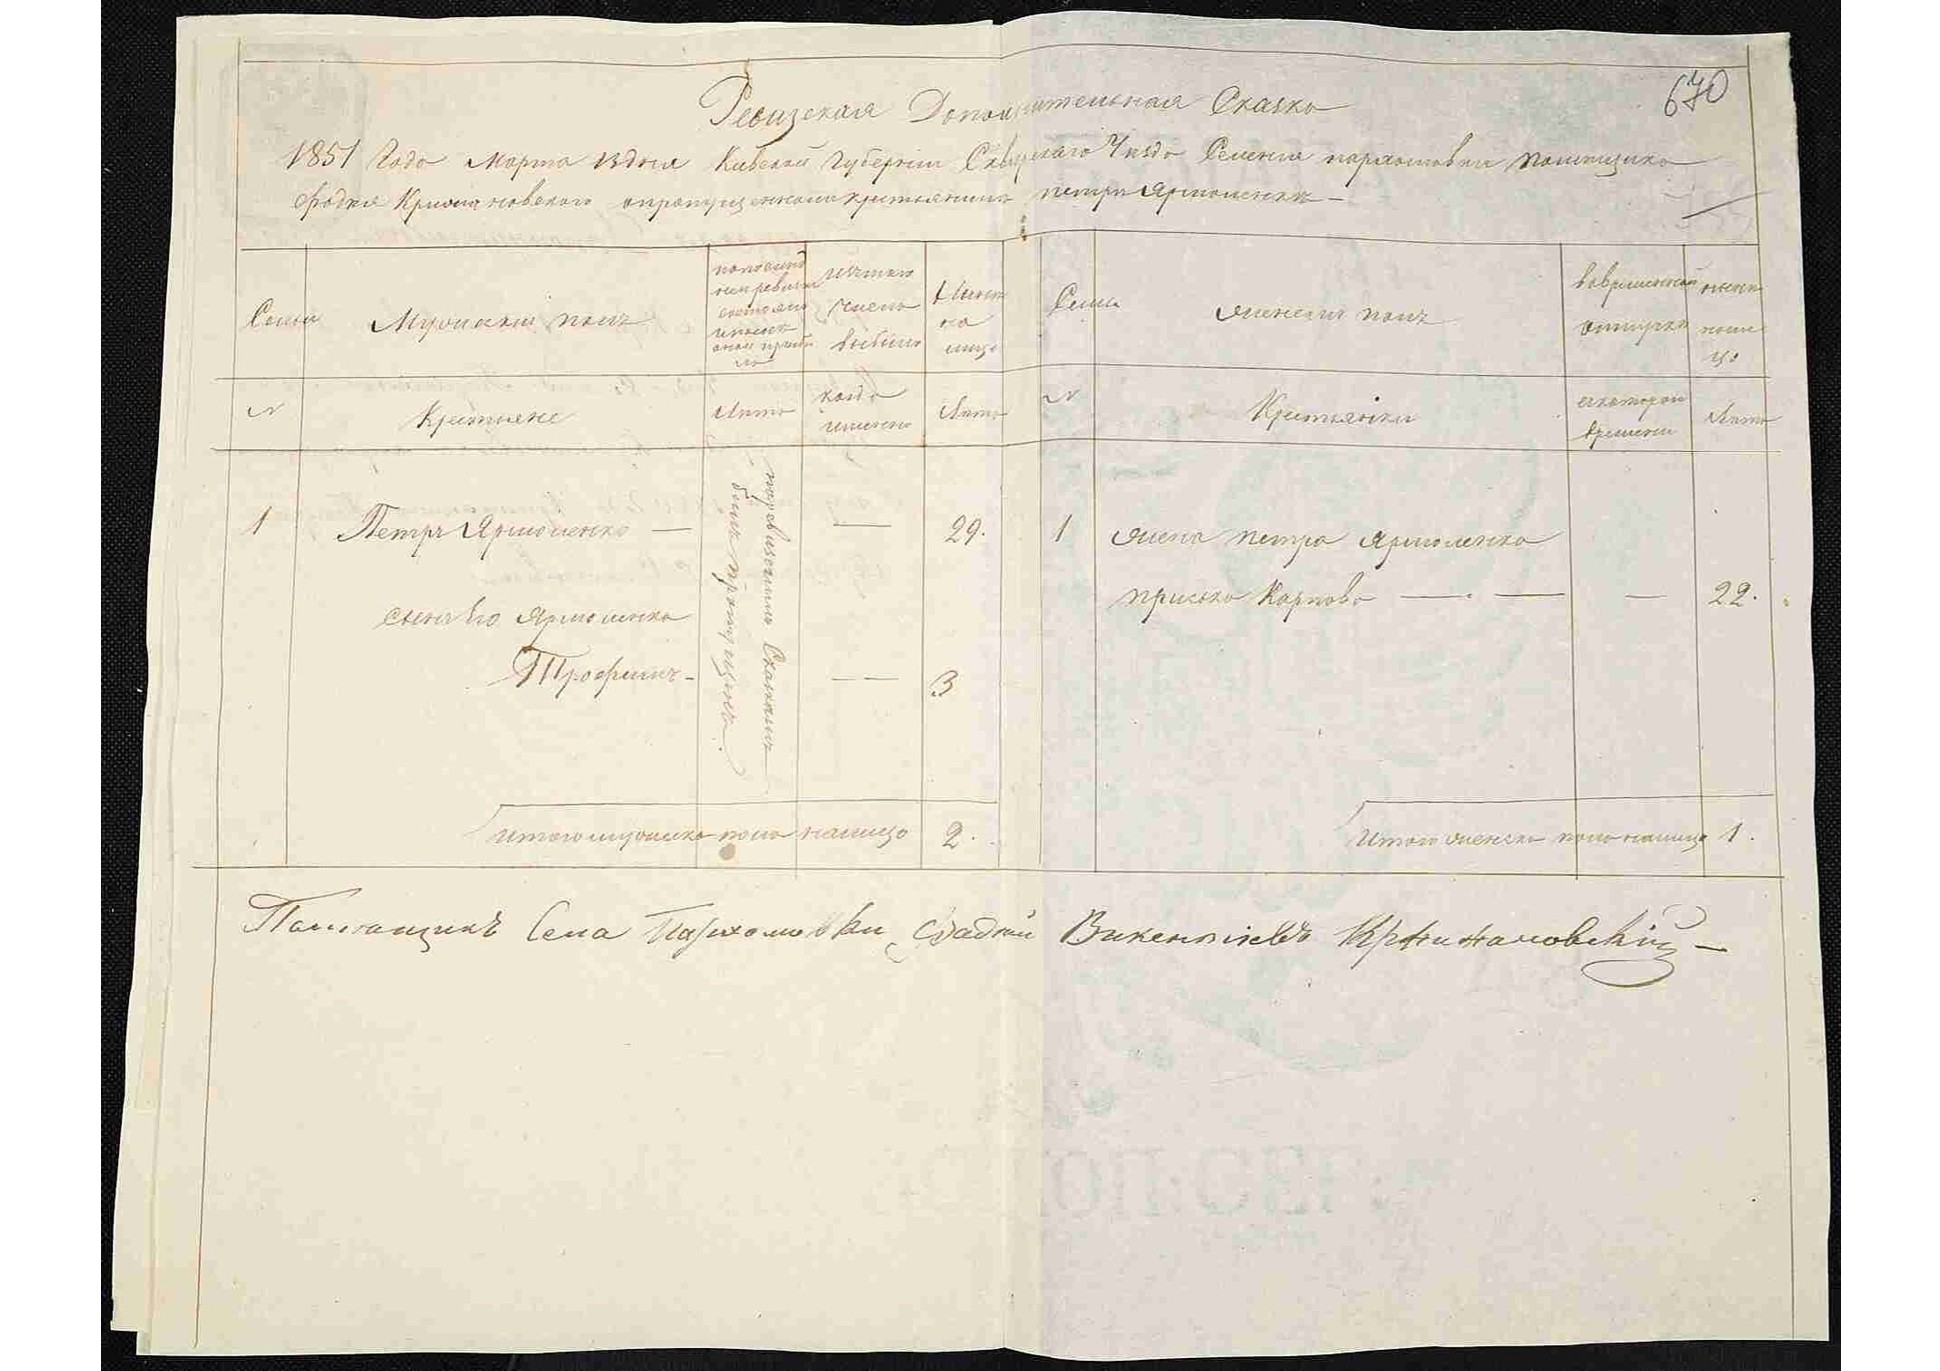 670
Ревизская Дополнительная Сказка
1851 Года Марта 13 дня Киевской Губернии Сквирского Уезда Селения пархомовки помещика
фадея Крижановского опропущенномъ крестьянинъ петръ Ярмоленкъ —
Семьи
Мужеский полъ
по последней
ревизии
состояло
и после
оной прибы
ло
изъ того
числа
выбыло
Ныне
на
лицо
Семьи
Женский полъ
вовременной
отлучке
ныне
на ли
цо
№
Крестьяне
Лета
когда
именно
Лета
№
Крестьянки
скоторого
времени
Лета
1 Петръ Ярмоленко — — 29.
поревизскимъ Сказкамъ
былъ пропущенъ.
сынъ Его Ярмоленка
Трофимъ - — — 3
1 жена петра Ярмоленка
приська Карпова — — — 22.
Итого мужеска пола налицо 2.
Итого женска пола налицо 1.
Помещикъ Села Пархомовки Фадей Викентиевъ Кржижановский —